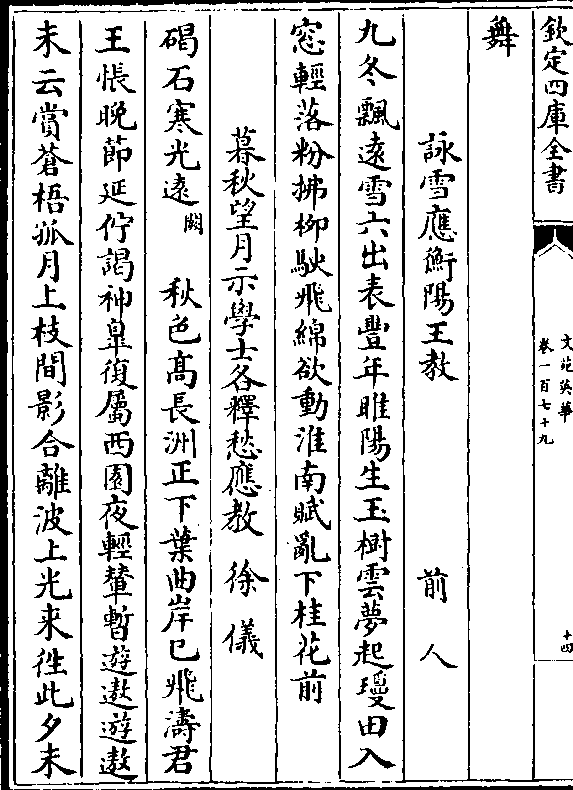 欽定四庫全書
文苑英華
卷一百七十九
十四
舞
詠雪應衡陽王教 前人
九冬飄遠雪六出表豐年睢陽生玉樹雲夢起瓊田入
窓輕落粉拂柳駛飛綿欲動淮南賦亂下桂花前
暮秋望月示學士各釋愁應教 徐儀
碣石寒光遠闕 秋色髙長洲正下葉曲岸已飛濤君
王悵晚節延佇謁神臯復屬西園夜輕輦暫遊遨遊遨
未云賞蒼梧孤月上枝間影合離波上光来徃此夕未